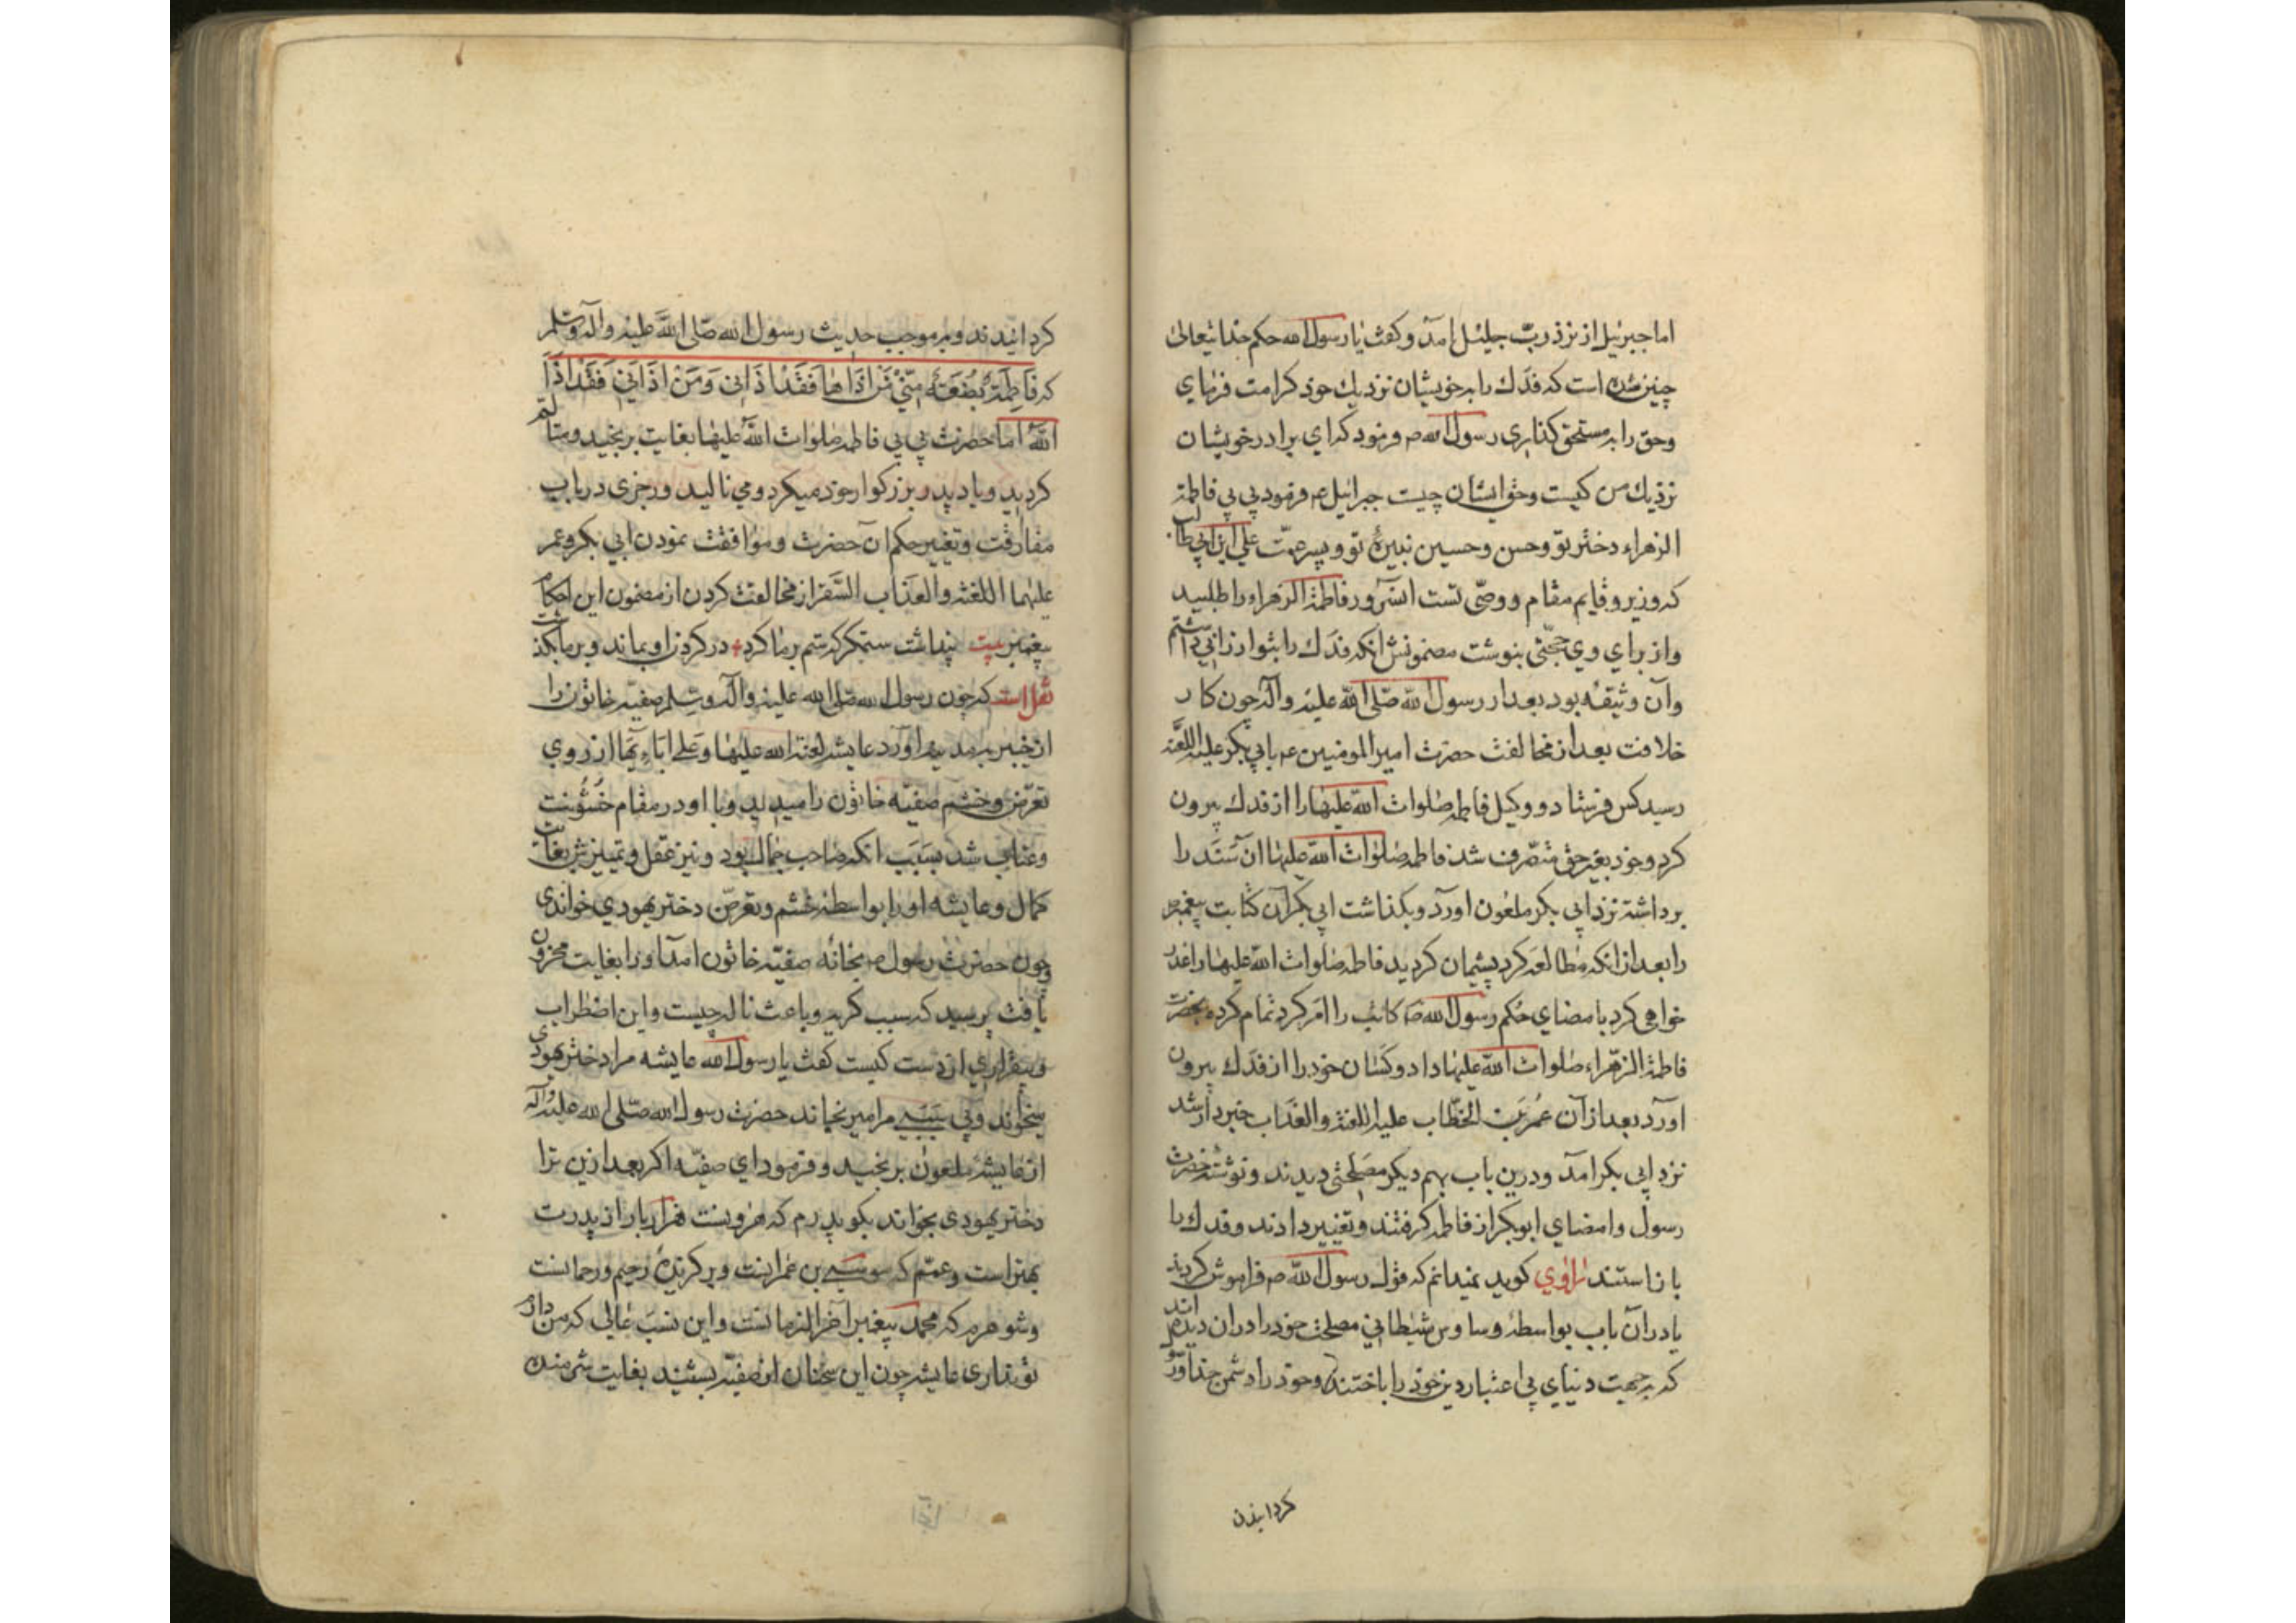 اما جبرئیل از نزد ربّ جلیل آمد و کفت یا رسول الله حکم خدایتعالی
چنین شده است که فدک را به خویشان نزدیک خود کرامت فرمای
وحق را به مستحق کذاری رسول الله ص فرمود که ای برادر خویشان
نزدیک من کیست وحق ایشان چیست جبرائیل عم فرمود بی بی فاطمة
الزهراء دختر تو وحسن وحسین نبیرهٔ تو و پسر عمّت علی ابن ابی طالب
که وزیر و قایم مقام و وصّی تست انسرور فاطمة الزهراء را طلبید
واز برای وی حجّتی بنوشت مضمونش انکه فدک را بتو ارزانی داشتم
وآن وثیقه بود بعد از رسول الله صلّی الله علیه وآله چون کار
خلافت بعد از مخالفت حضرت امیرالمومنین عم بابی بکر علیه اللعنه
رسید کس فرستاد و وکیل فاطمه صلوات الله علیها را از فدک بیرون
کرد وخود بغیر حق متصّرف شد فاطمه صلوات الله علیها ان سَنَد را
برداشته نزد ابی بکر ملعون اورد وبکذاشت ابی بکر آن کتابت پیغمبر ص
را بعد از انکه مطالعه کرد پشیمان کردید فاطمه صلوات الله علیها را عذر
خواهی کرد بامضای حُکم رسول الله ص کاتب را امر کرد تمام کرده بحضرت
فاطمة الزهراء صلوات الله علیها داد و کسان خود را از فدک بیرون
اورد بعد از آن عُمَر بن الخطّاب علیه اللعنة والعَذاب خبردار شد
نزد ابی بکر امد ودرین باب بهم دیکر مصلحتی دیدند ونوشته حضرت
رسول وامضای ابوبکر از فاطمه کرفتند وتغییر دادند وفدک را
باز استند راوی کوید نمیدانم که قول رسول الله ص فراموش کردند
یا دران باب بواسطهٔ وساوس شیطانی مصلحت خود را در ان دیده اند
که بجهت دنیای بی اعتبار دین خود را باختند وخود را دشمن خدا ورسول
کردانیدن
کردانیدند وبر موجب حدیث رسول الله صلّی الله علیه وآله وسلّم
که فَاطِمَةُ بُضْعَةُ مِنّیْ مَنْ اذَاهَا فَقَدْ اذَانِی وَمَنْ اذَانِی فَقَدْ اذَا
اللهَ اما حضرت بی بی فاطمه صلوات الله علیها بغایت برنجید ومتالّم
کردید ویاد پدر بزرکوار خود میکرد ومی نالید ورجزی در باب
مفارقت وتغییر حکم ان حضرت وموافقت نمودن ابی بکر وعمر
علیهما اللعنة والعذاب السَّقَر از مخالفت کردن از مضمون این احکام
پیغمبر بیت پنداشت ستمکر که ستم بر ما کرد در کردن او بماند وبر ما بکذشت
نقل است که چون رسول الله صلی الله علیه وآله وسلم صفیّه خاتون را
از خیبر بمدینه آورد عایشه لعنة الله علیها وَعَلی ابَاءِهَا از روی
تعرّض وخشم صفیّه خاتون را میدید وبا او در مقام خُشُونت
وعتاب شد بسَبَب انکه صاحب جمال بود ونیز عقل وتمییزش بغایت
کمال وعایشه او را بواسطهٔ خشم وتعرّض دختر یهودی خواندی
وچون حضرت رسول ص بخانه صفیّه خاتون امد او را بغایت محزون
یافت پرسید که سبب کریه وباعث ناله چیست واین اضطراب
وبیقراری از دست کیست کفت یا رسول الله عایشه مرا دختر یهودی
میخواند وبی سَبَبی مرا میرنجاند حضرت رسول الله صلّی الله علیه وآله
از عایشهٔ ملعون برنجید وفرمود ای صفیّه اکر بعد ازین ترا
دختر یهودی بخواند بکو پدرم که هرونست هزار بار از پدرت
بهتر است وعمّم که موسی بن عمرانست وبرکزیدهٔ رحیم ورحمانست
وشوهرم که محمد پیغمبر آخر الزمانست واین نسَب عٰالی که من دارم
تو نداری عایشه چون این سخنان از صفیّه بشنید بغایت شرمنده